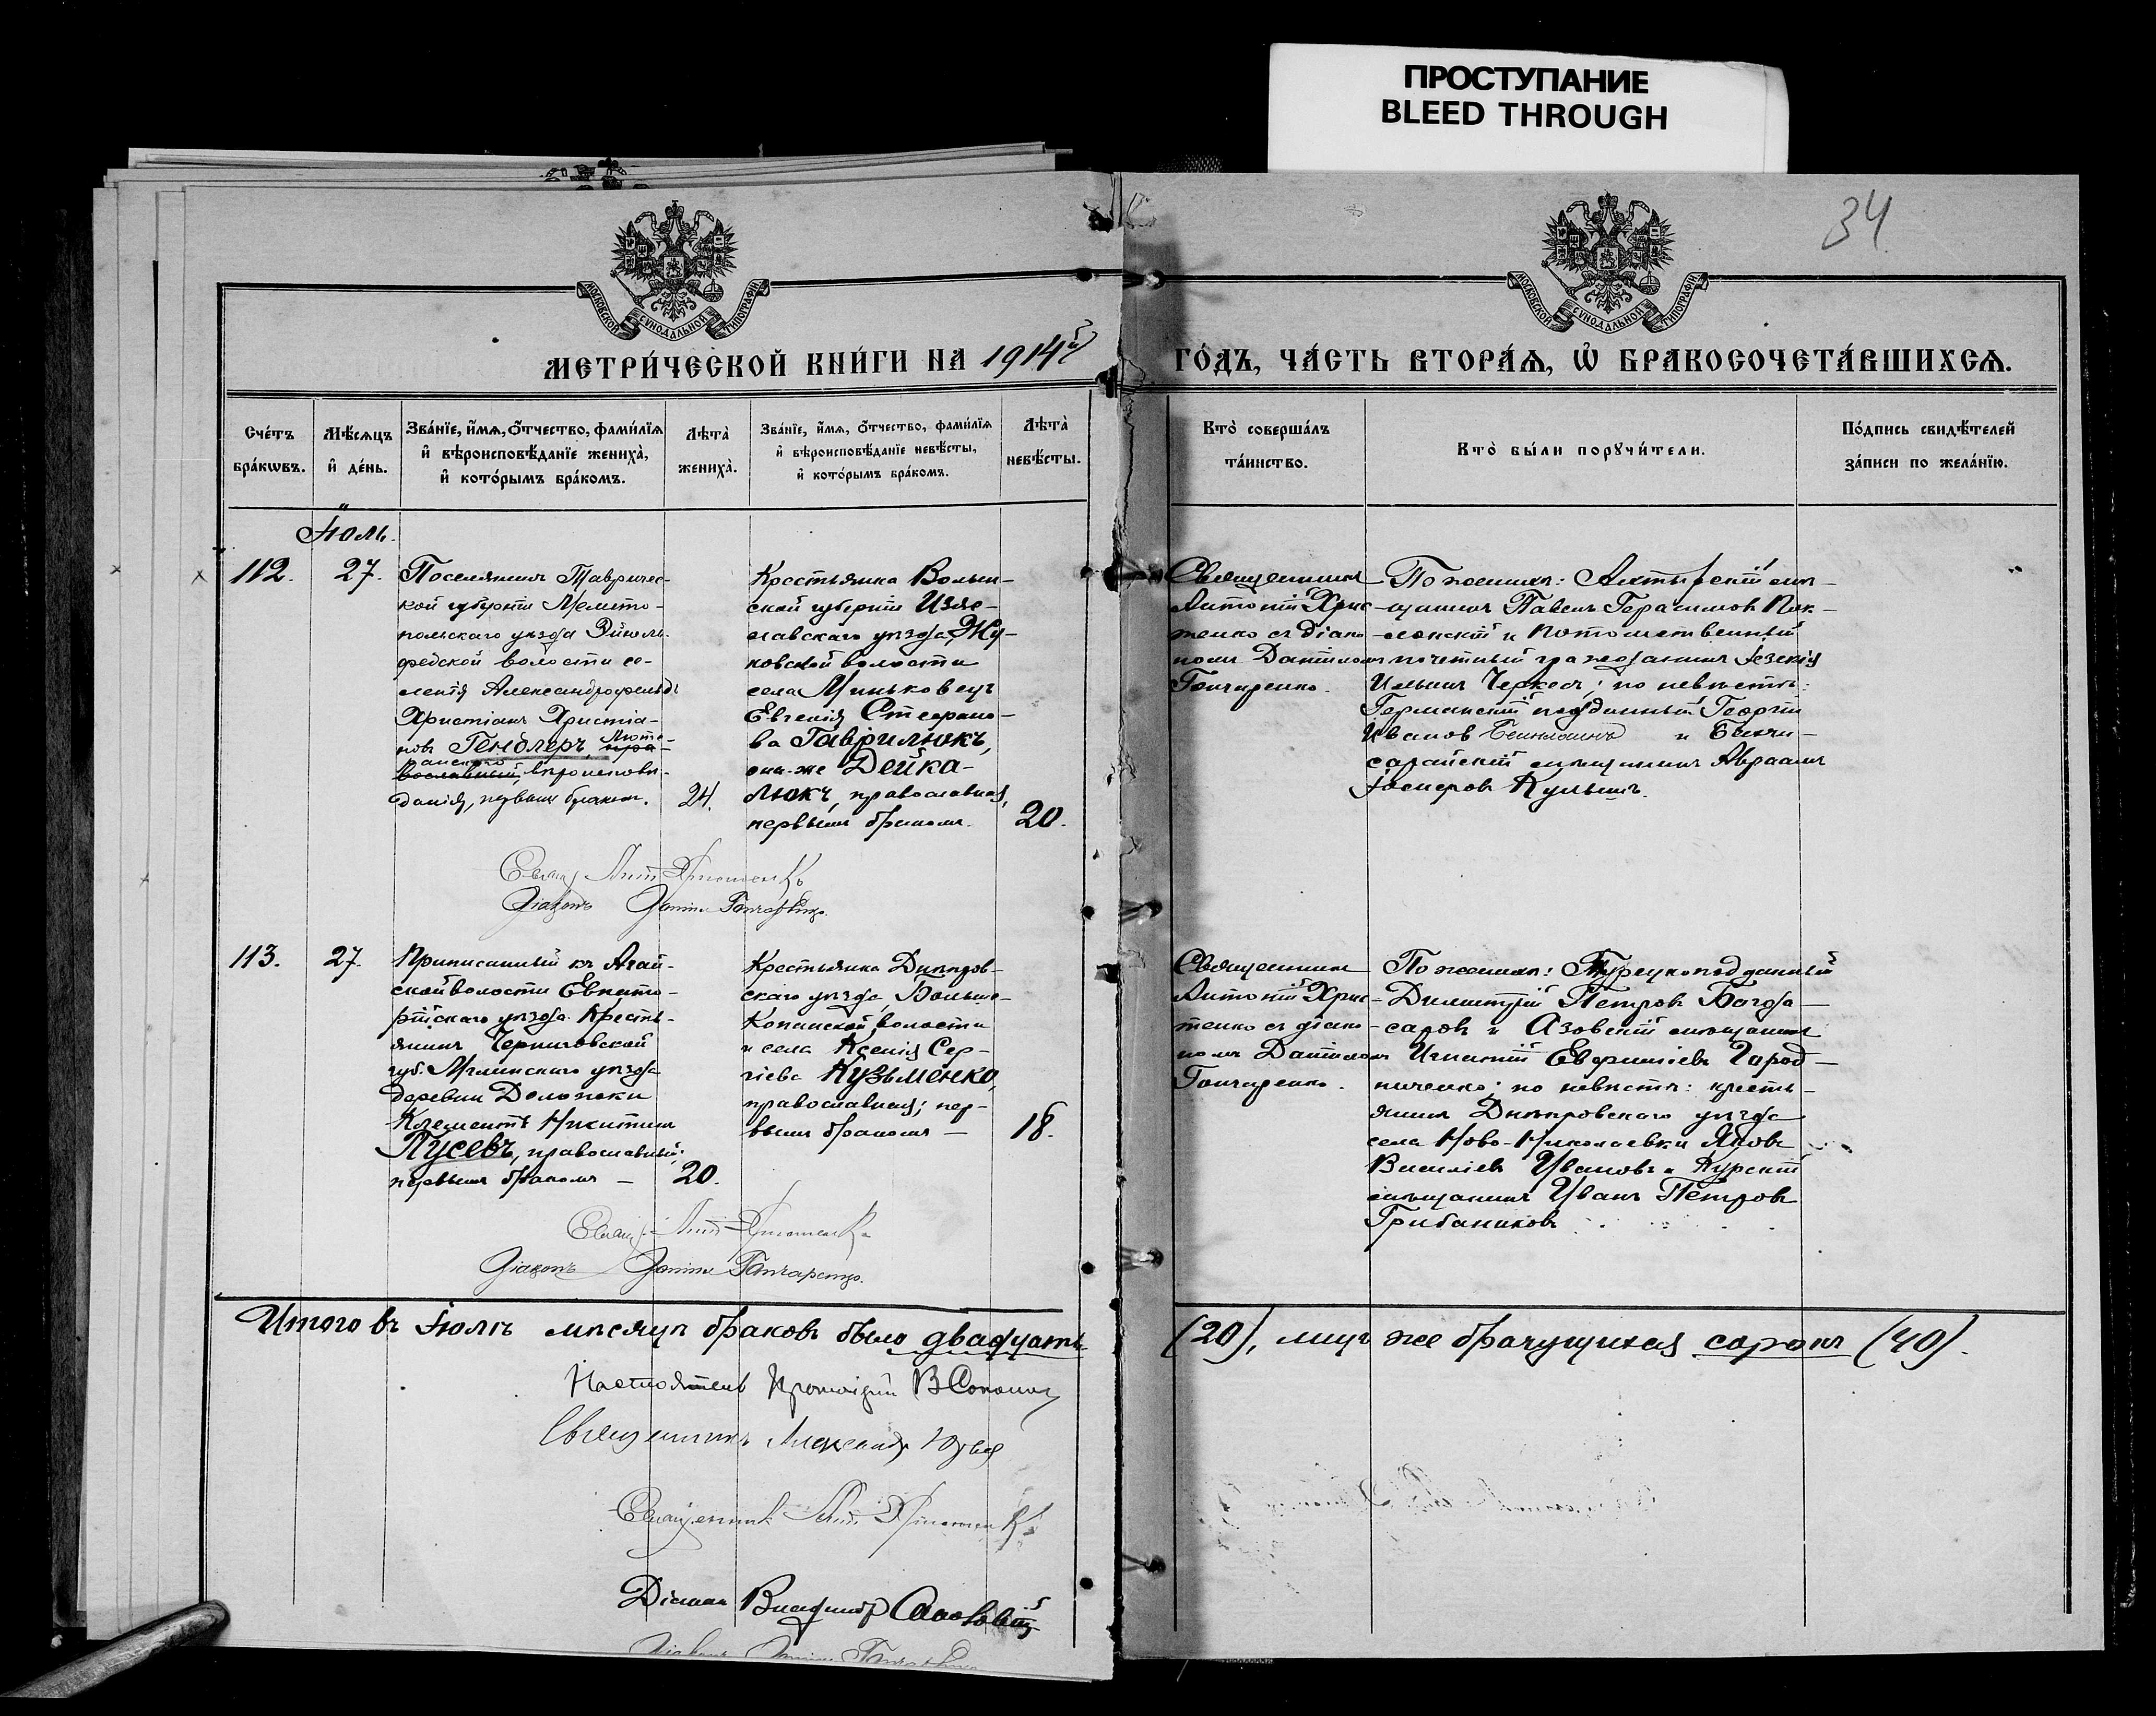 ПРОСТУПАНИЕ
BLEED THROUGH
34
МОСКОВСКОЙ СѴНОДАЛЬНОЙ ТИПОГРАФІИ
МОСКОВСКОЙ СѴНОДАЛЬНОЙ ТИПОГРАФІИ
МЕТРИ́ЧЕСКОЙ КНИ́ГИ НА 1914й
ГО́ДЪ, ЧА́СТЬ ВТОРА́Ѧ, Ѽ БРАКОСОЧЕТА́ВШИХСѦ.
Сче́тъ
бра́кѡвъ.
Мѣ́сяцъ
и҆ де́нь.
Зва́нїе, и҆́мѧ, ѻ҆́тчество, фами́лїѧ
и҆ вѣроисповѣ́данїе жениха̀,
и҆ кото́рымъ бра́комъ.
Лѣта̀
жениха̀.
Зва́нїе, и҆́мѧ, ѻ҆́тчество, фами́лїѧ
и҆ вѣроисповѣ́данїе невѣ́сты,
и҆ кото́рымъ бра́комъ.
Лѣта̀
невѣ́сты.
Кто̀ соверша́лъ
та́инство.
Кто̀ бы́ли порꙋчи́тели.
По́дпись свидѣ́телей
за́писи по жела́нїю.
Іюль.
112.
27.
Поселянинъ Тавричес-
кой губерніи Мелито-
польскаго уѣзда Эйген-
фельдской волости се-
ленія Александрофельдъ
Христіанъ Христіа-
новъ Гендлеръ Люте-
ранскаго
пра-
вославный, вѣроисповѣ-
данія, первымъ бракомъ.
24.
Крестьянка Волын-
ской губерніи Изяс-
лавскаго уѣзда, Жу-
ковской волости
села Миньковецъ
Евгенія Стефано-
ва Гаврилюкъ,
она-же Дейка-
люкъ, православная,
первымъ бракомъ.
20.
Священникъ
Антоній Хрис-
тенко съ діако-
номъ Даніиломъ
Гончаренко.
По женихѣ: Ахтырскій мѣ-
щанинъ Павелъ Герасимовъ Пок-
и Потомственный
почетный гражданинъ Іезекія
Ильинъ Черкесъ; по невѣстѣ:
Германскій подданный Георгій
Ивановъ и Бахчи-
сарайскій мѣщанинъ Авраамъ
Іосифовъ Кульшъ.
Свящ. Ант. Христенко
Діаконъ Даніилъ Гончаренко.
113.
27.
Приписанный къ Агай-
ской волости Евпато-
рійскаго уѣзда кресть-
янинъ Черниговской
губ. Мглинскаго уѣзда
деревни Доложеки
Климентъ Никитинъ
Гусевъ, православный;
первымъ бракомъ —
20.
Крестьянка Днѣпров-
скаго уѣзда, Больше-
Копанской волости
и села Ксенія Сер-
гіева Кузьменко,
православная; пер-
вымъ бракомъ —
18.
Священникъ
Антоній Хрис-
тенко съ діако-
номъ Даніиломъ
Гончаренко.
По женихѣ: Турецкоподданный
Димитрій Петровъ Богда-
саровъ и Азовскій мѣщанинъ
Игнатій Евфиміевъ Город-
ниченко; по невѣстѣ: кресть-
янинъ Днѣпровскаго уѣзда
села Ново-Николаевки Яковъ
Василіевъ Ивановъ и Курскій
мѣщанинъ Иванъ Петровъ
Грибаниковъ
Свящ. Ант. Христенко
Діаконъ Даніилъ Гончаренко.
Итого въ Іюлѣ мѣсяцѣ браковъ было двадцать
(20), лицъ же брачущихся сорокъ (40).
Настоятель Протоіерей В.
Священникъ Александръ
Священникъ Ант. Христенко
Діаконъ Владиміръ
Діаконъ Даніилъ Гончаренко